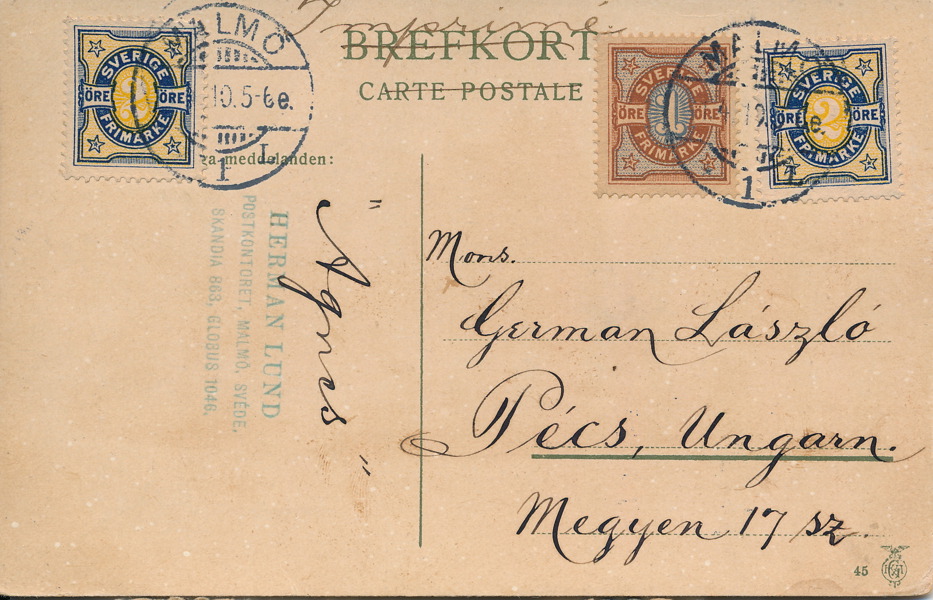 Imprimé
BREFKORT
CARTE POSTALE
SVERIGE
2
ÖRE ÖRE
FRIMÄRKE
MALMÖ
10.5-6e.
1 L
SVERIGE
1
ÖRE ÖRE
FRIMÄRKE
MALM
1 L
SVERIGE
2
ÖRE ÖRE
FRIMÄRKE
ra meddelanden:
HERMAN LUND
POSTKONTORET, MALMÖ, SVÈDE,
SKANDIA 863, GLOBUS 1046.
"Agnes"
Mons.
German László
Pécs, Ungarn.
Megyen 17 sz.
45